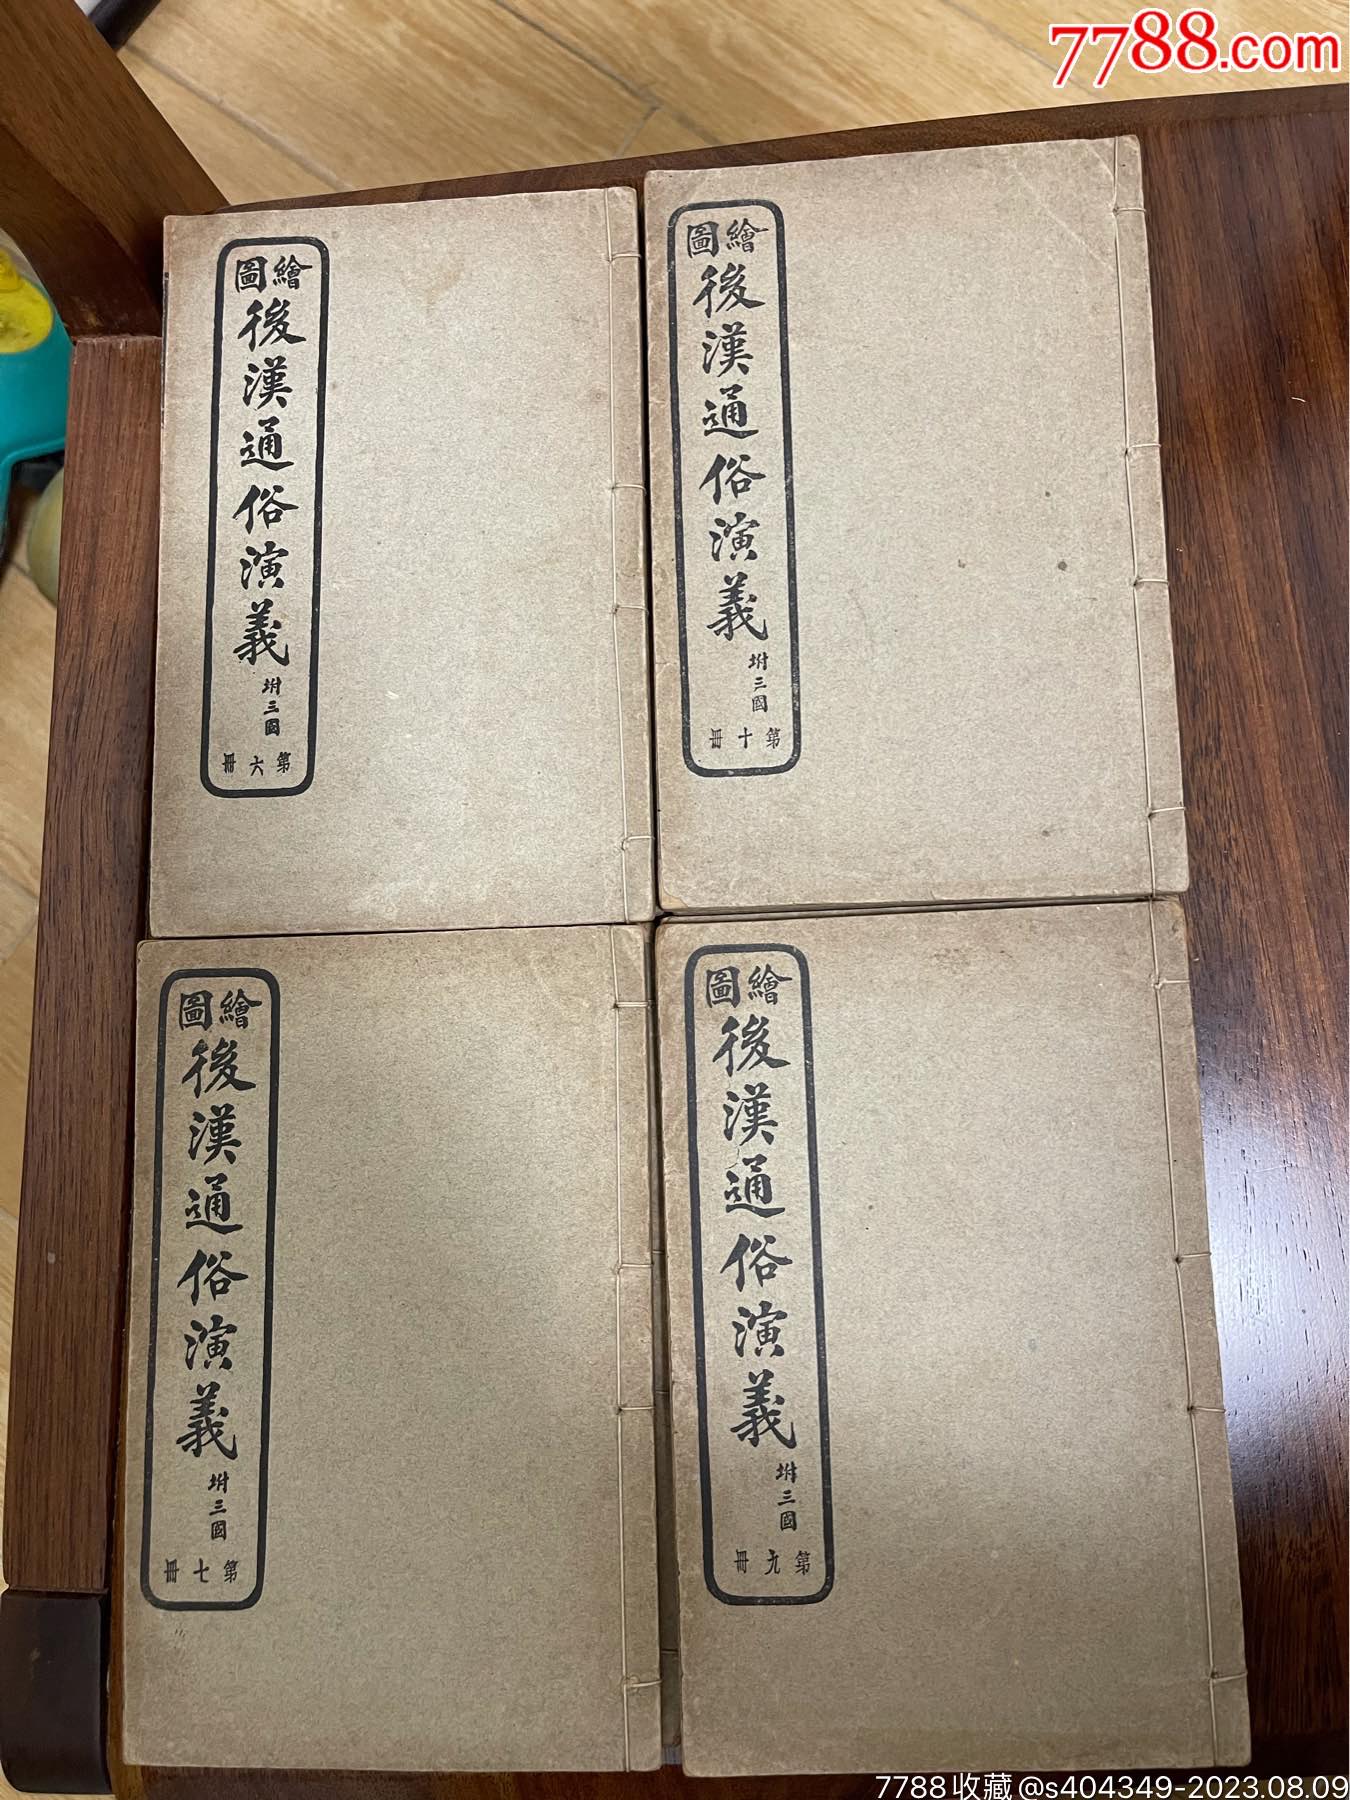 7788.com
繪圖
後漢通俗演義
坿三國
第六冊
繪圖
後漢通俗演義
坿三國
第十冊
繪圖
後漢通俗演義
坿三國
第七冊
繪圖
後漢通俗演義
坿三國
第九冊
7788收藏@s404349-2023.08.09